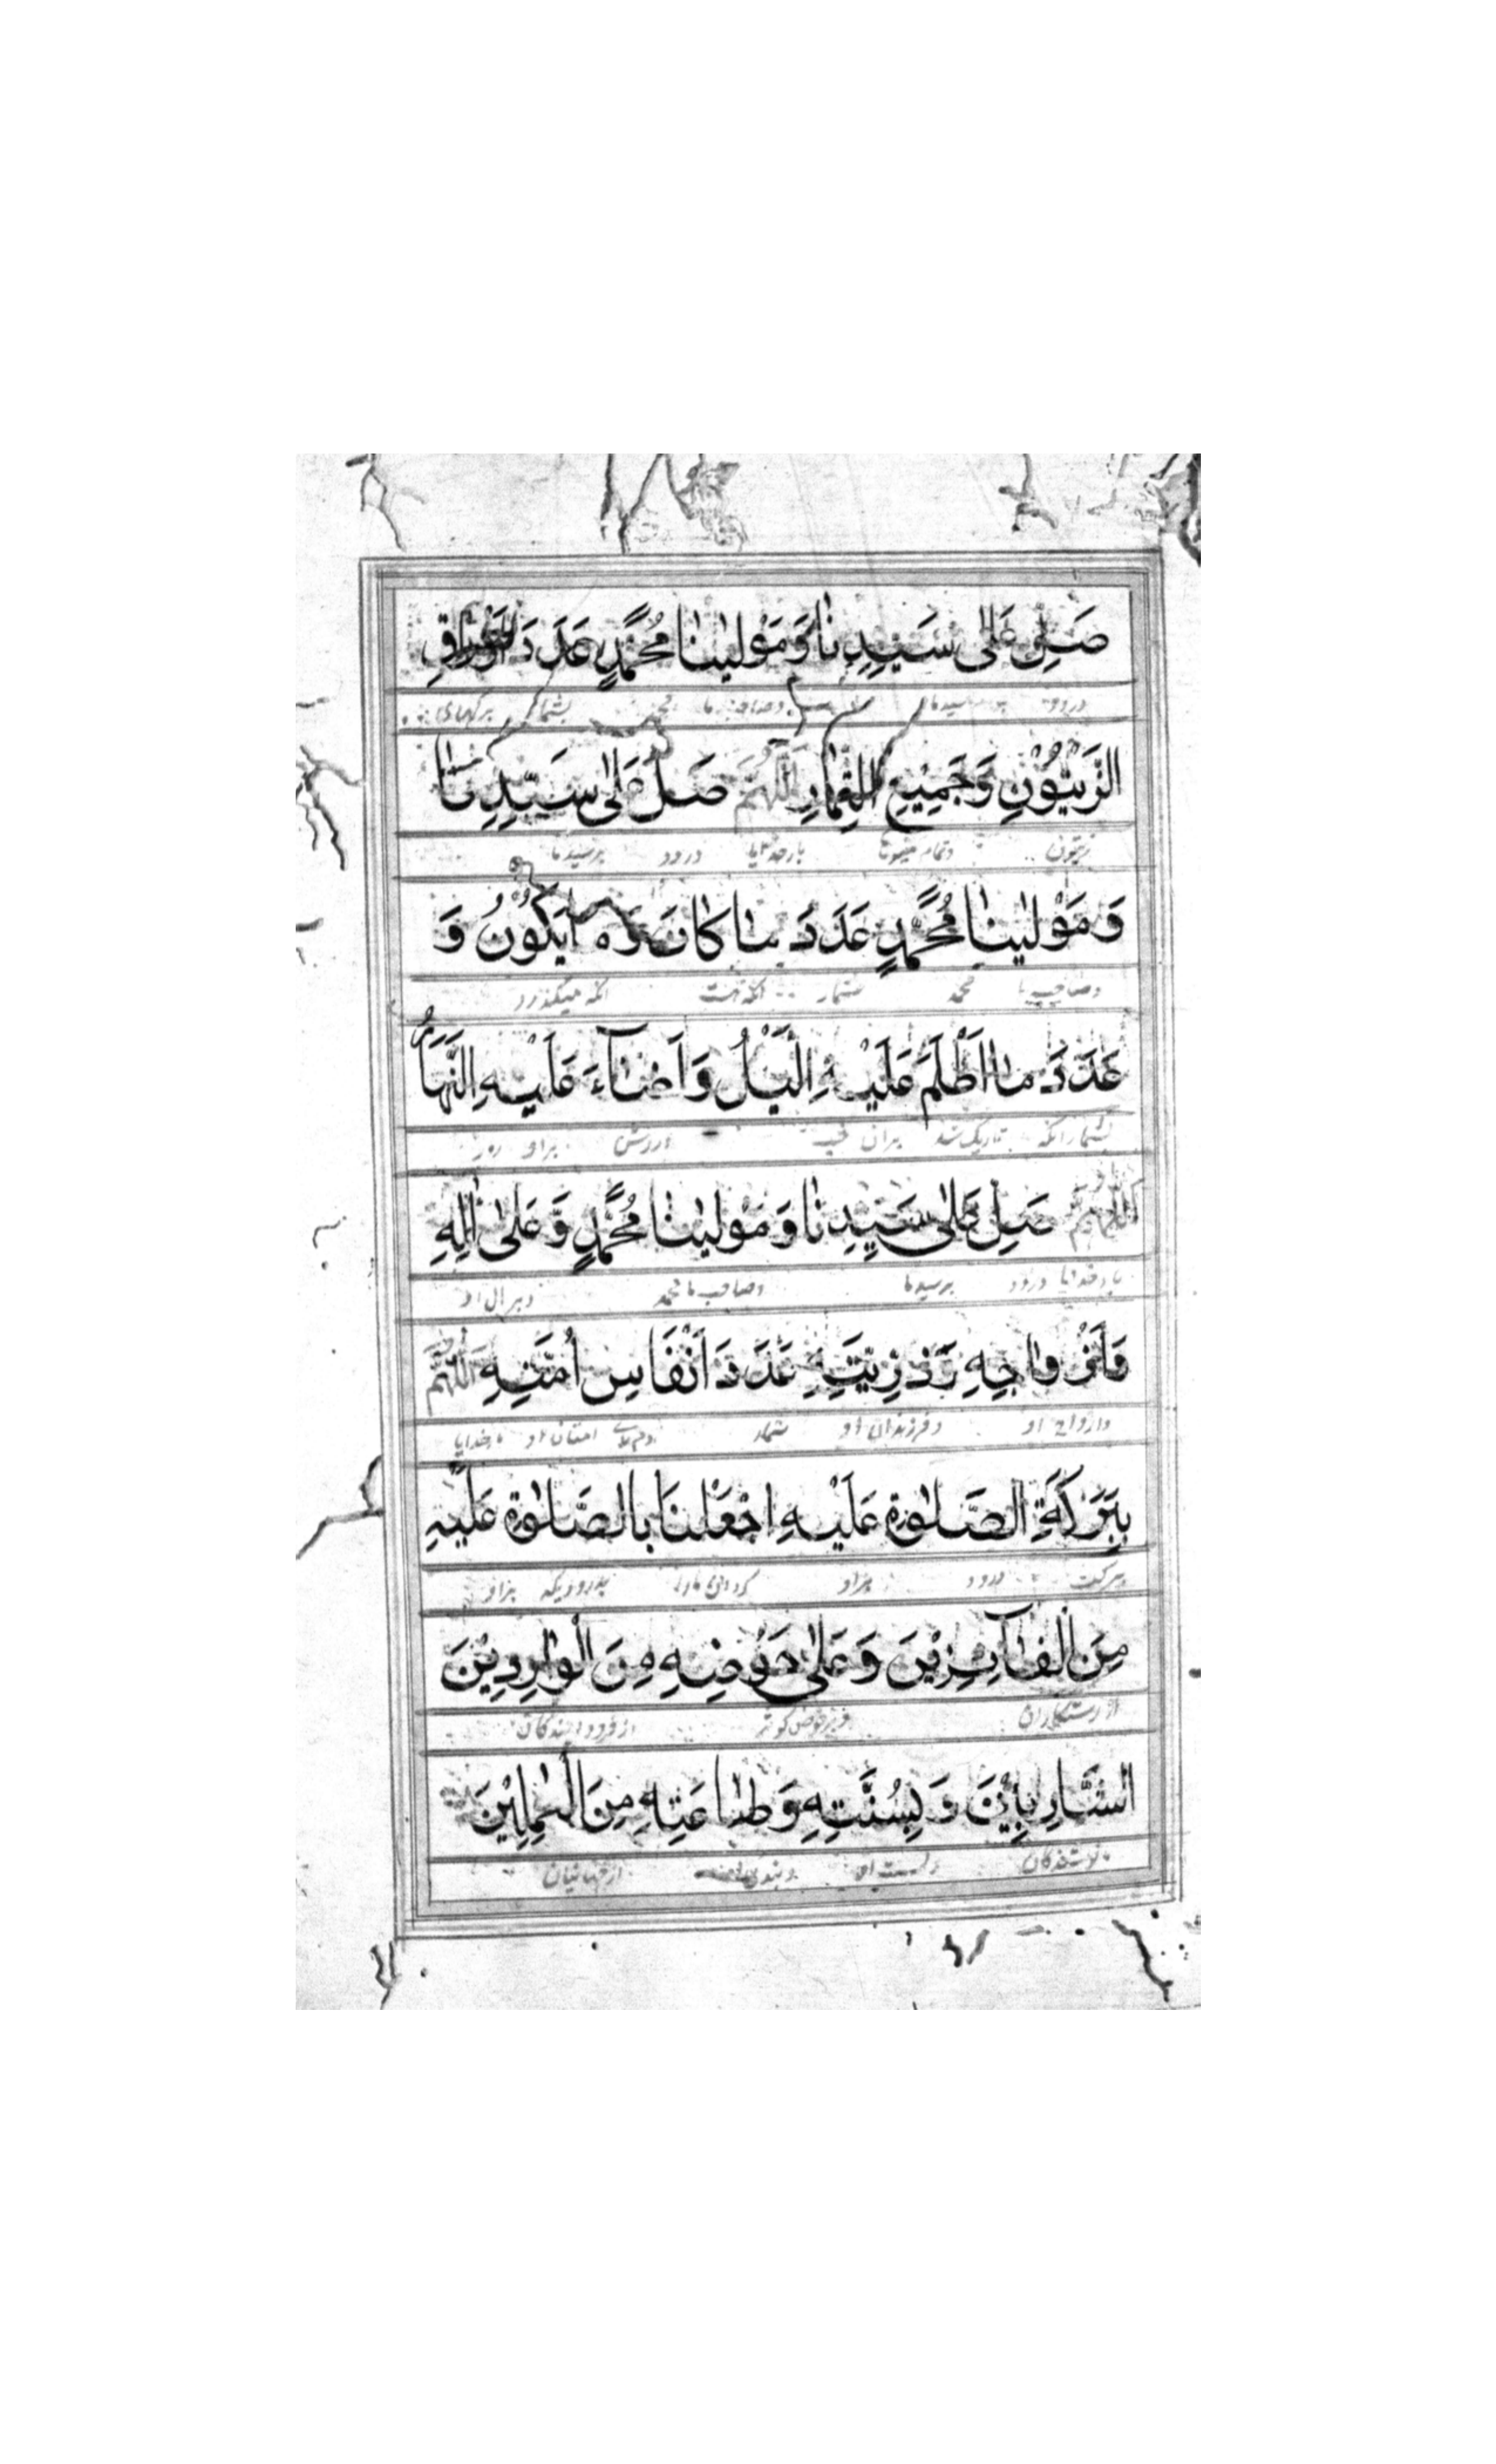 صَلِّ عَلٰى سَيِّدِنَا وَمَوْلٰينَا مُحَمَّدٍ عَدَدَ اَوْرَاقِ
درود بر سیدنا وصاحب ما محمد بشمار برگهای
الزَّيْتُوْنِ وَجَمِيْعِ الثِّمَارِ اَللّٰهُمَّ صَلِّ عَلٰى سَيِّدِنَا
زیتون وتمام میوها بارخدایا درود برسیدما
وَمَوْلٰينَا مُحَمَّدٍ عَدَدَ مَا كَانَ وَمَا يَكُوْنُ وَ
وصاحب ما محمد شمار انکه میگذرد
عَدَدَ مَا اَظْلَمَ عَلَيْهِ الَّيْلُ وَاَضَآءَ عَلَيْهِ النَّهَارُ
بشمار انکه تاریک شد بران شب براو روز
اَللّٰهُمَّ صَلِّ عَلٰى سَيِّدِنَا وَمَوْلٰينَا مُحَمَّدٍ وَّعَلٰى اٰلِهِ
بارخدایا درود برسیدما وصاحب ما محمد وبر ال او
وَاَزْوَاجِهِ وَذُرِّيَّتِهِ عَدَدَ اَنْفَاسِ اُمَّتِهِ اَللّٰهُمَّ
وازواج او وفرزندان او شمار دمهای امتان او بارخدایا
بِبَرَكَةِ الصَّلٰوةِ عَلَيْهِ اجْعَلْنَا بِالصَّلٰوةِ عَلَيْهِ
ببرکت درود براو گردان مارا بدرودیکه براو
مِنَ الْفَآئِزِيْنَ وَعَلٰى حَوْضِهِ مِنَ الْوَارِدِيْنَ
از رستگاران وبرحوض کوثر از فرود ایندگان
الشَّارِبِيْنَ وَبِسُنَّتِهِ وَطَاعَتِهِ مِنَ الْعٰمِلِيْنَ
نوشندکان وبسنت او